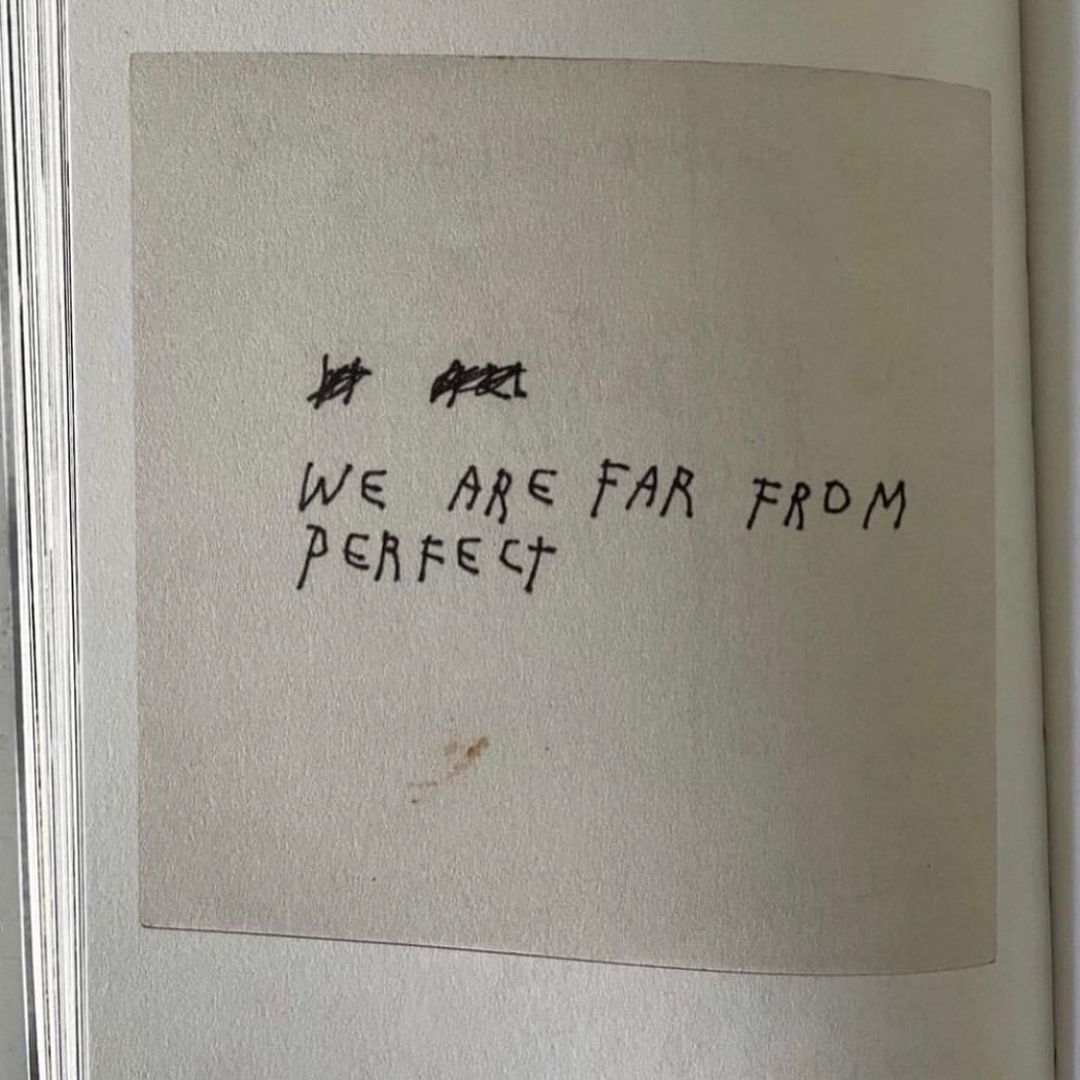 WE ARE FAR FROM
PERFECT